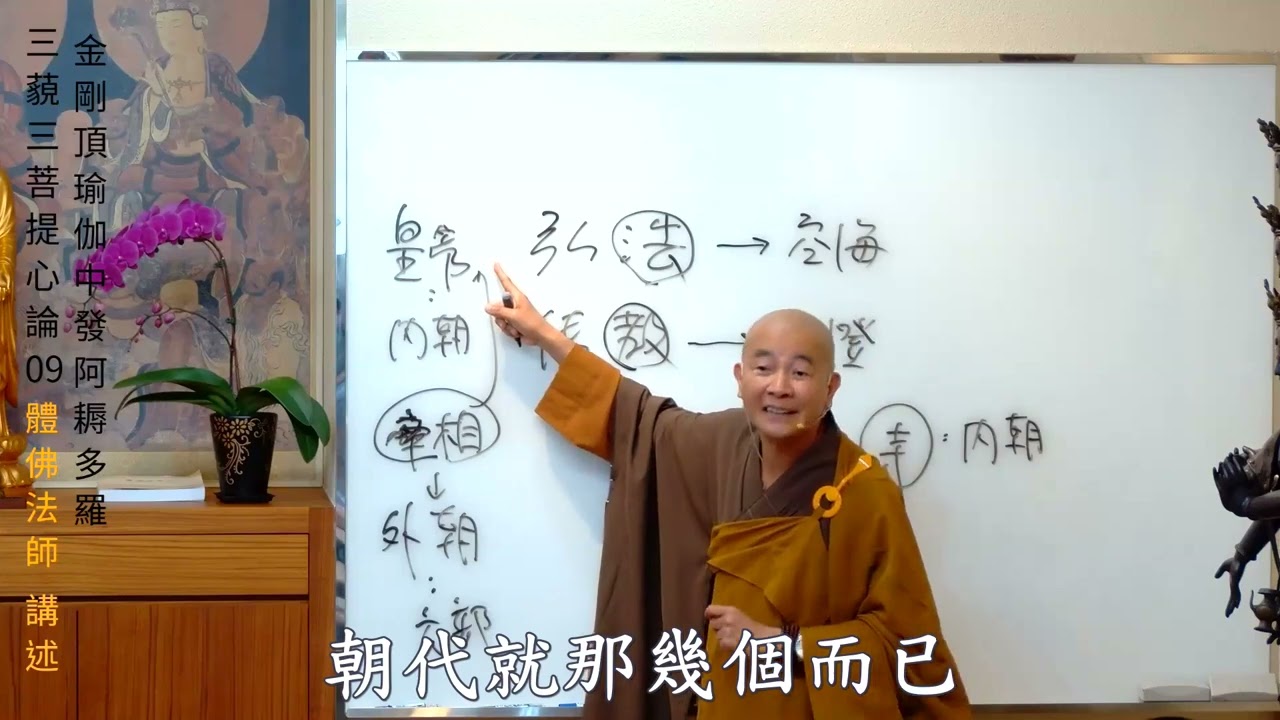 金剛頂瑜伽中發阿耨多羅
三藐三菩提心論09體佛法師 講述
皇帝 弘法→空海
: 
內朝 教→澄
宰相
寺:內朝
↓
外朝
:
六部
朝代就那幾個而已